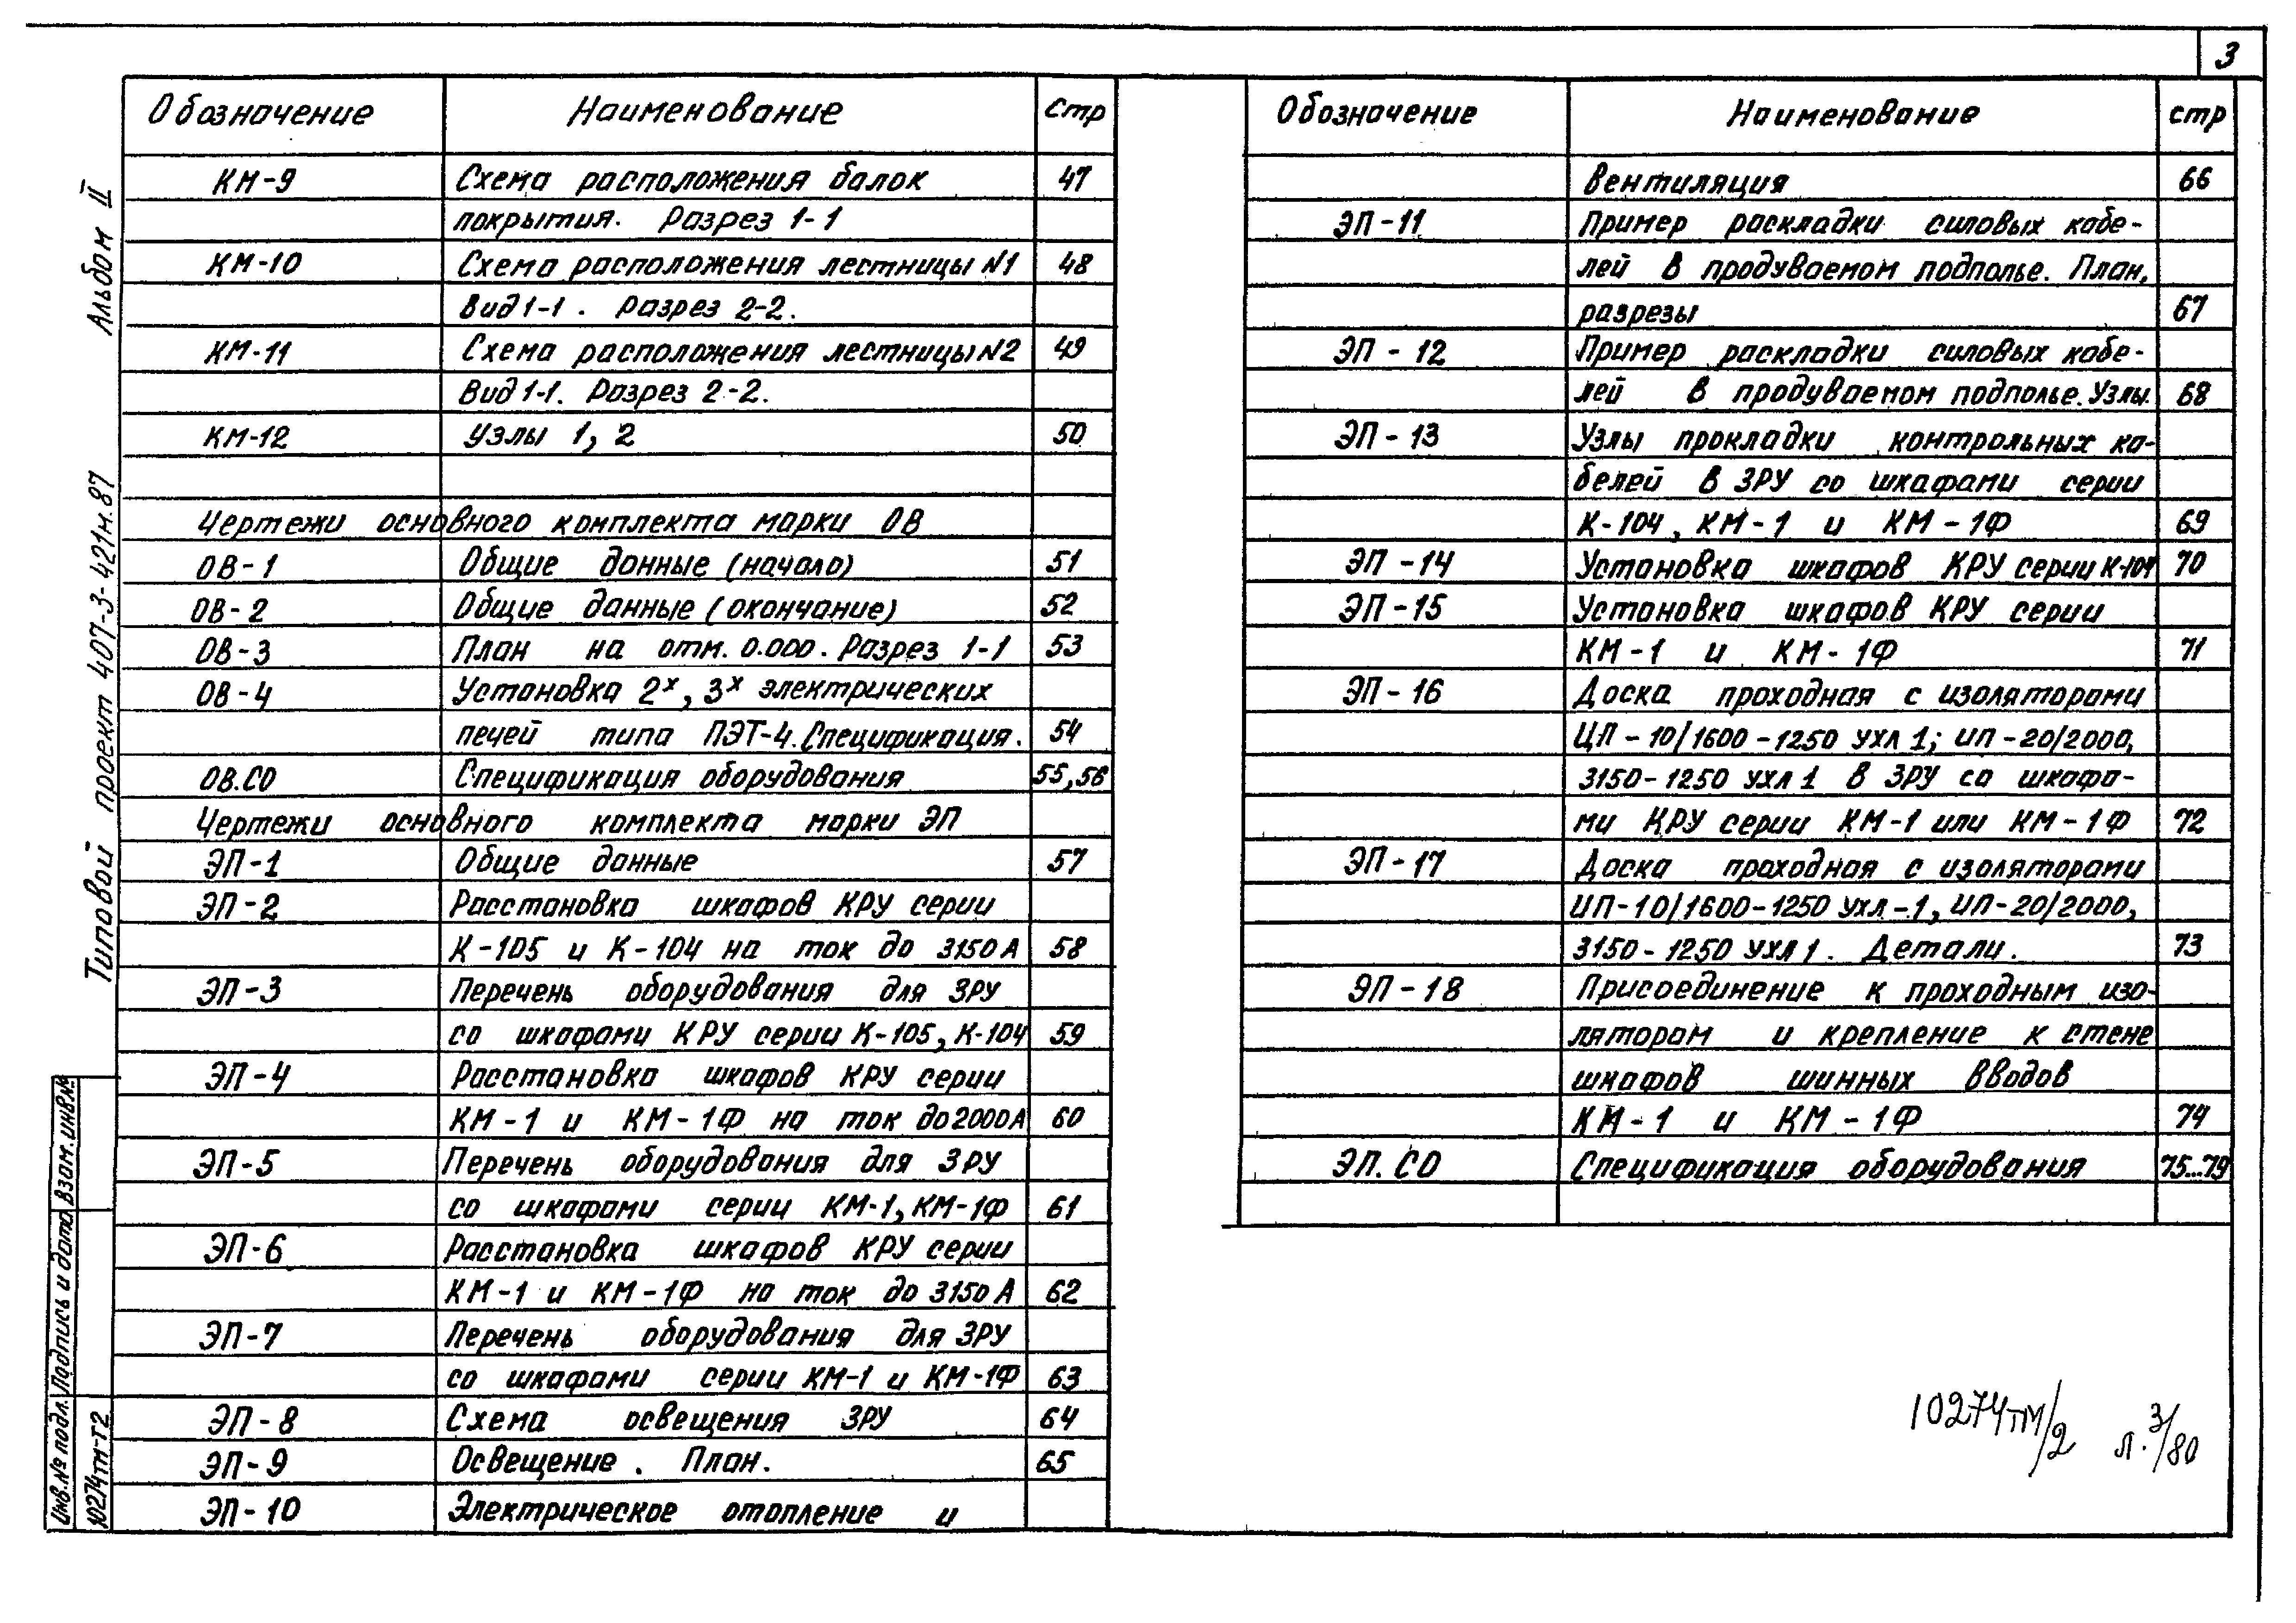 3
Обозначение Наименование Стр
КМ-9 Схема расположения балок 47
покрытия. Разрез 1-1
КМ-10 Схема расположения лестницы N1 48
Вид 1-1. Разрез 2-2.
КМ-11 Схема расположения лестницы N2 49
Вид 1-1. Разрез 2-2.
КМ-12 Узлы 1, 2 50
Чертежи основного комплекта марки ОВ
ОВ-1 Общие данные (начало) 51
ОВ-2 Общие данные (окончание) 52
ОВ-3 План на отм. 0.000. Разрез 1-1 53
ОВ-4 Установка 2х, 3х электрических
печей типа ПЭТ-4. Спецификация. 54
ОВ.СО Спецификация оборудования 55,56
Чертежи основного комплекта марки ЭП
ЭП-1 Общие данные 57
ЭП-2 Расстановка шкафов КРУ серии
К-105 и К-104 на ток до 3150 А 58
ЭП-3 Перечень оборудования для ЗРУ
со шкафами КРУ серии К-105, К-104 59
ЭП-4 Расстановка шкафов КРУ серии
КМ-1 и КМ-1Ф на ток до 2000А 60
ЭП-5 Перечень оборудования для ЗРУ
со шкафами серии КМ-1, КМ-1Ф 61
ЭП-6 Расстановка шкафов КРУ серии
КМ-1 и КМ-1Ф на ток до 3150 А 62
ЭП-7 Перечень оборудования для ЗРУ
со шкафами серии КМ-1 и КМ-1Ф 63
ЭП-8 Схема освещения ЗРУ 64
ЭП-9 Освещение. План. 65
ЭП-10 Электрическое отопление и
Обозначение Наименование стр
вентиляция 66
ЭП-11 Пример раскладки силовых кабе-
лей в продуваемом подполье. План,
разрезы 67
ЭП-12 Пример раскладки силовых кабе-
лей в продуваемом подполье. Узлы. 68
ЭП-13 Узлы прокладки контрольных ка-
белей в ЗРУ со шкафами серии
К-104, КМ-1 и КМ-1Ф 69
ЭП-14 Установка шкафов КРУ серии К-104 70
ЭП-15 Установка шкафов КРУ серии
КМ-1 и КМ-1Ф 71
ЭП-16 Доска проходная с изоляторами
ЦП-10/1600-1250 УХЛ 1; ИП-20/2000,
3150-1250 УХЛ 1 в ЗРУ со шкафа-
ми КРУ серии КМ-1 или КМ-1Ф 72
ЭП-17 Доска проходная с изоляторами
ИП-10/1600-1250 УХЛ-1, ИП-20/2000,
3150-1250 УХЛ 1. Детали. 73
ЭП-18 Присоединение к проходным изо-
ляторам и крепление к стене
шкафов шинных вводов
КМ-1 и КМ-1Ф 74
ЭП.СО Спецификация оборудования 75...79
10274тм/2 л. 3/80
Типовой проект 407-3-421м.87 Альбом II
Инв.№ подл. Подпись и дата Взам.инв№
10274тм-т2